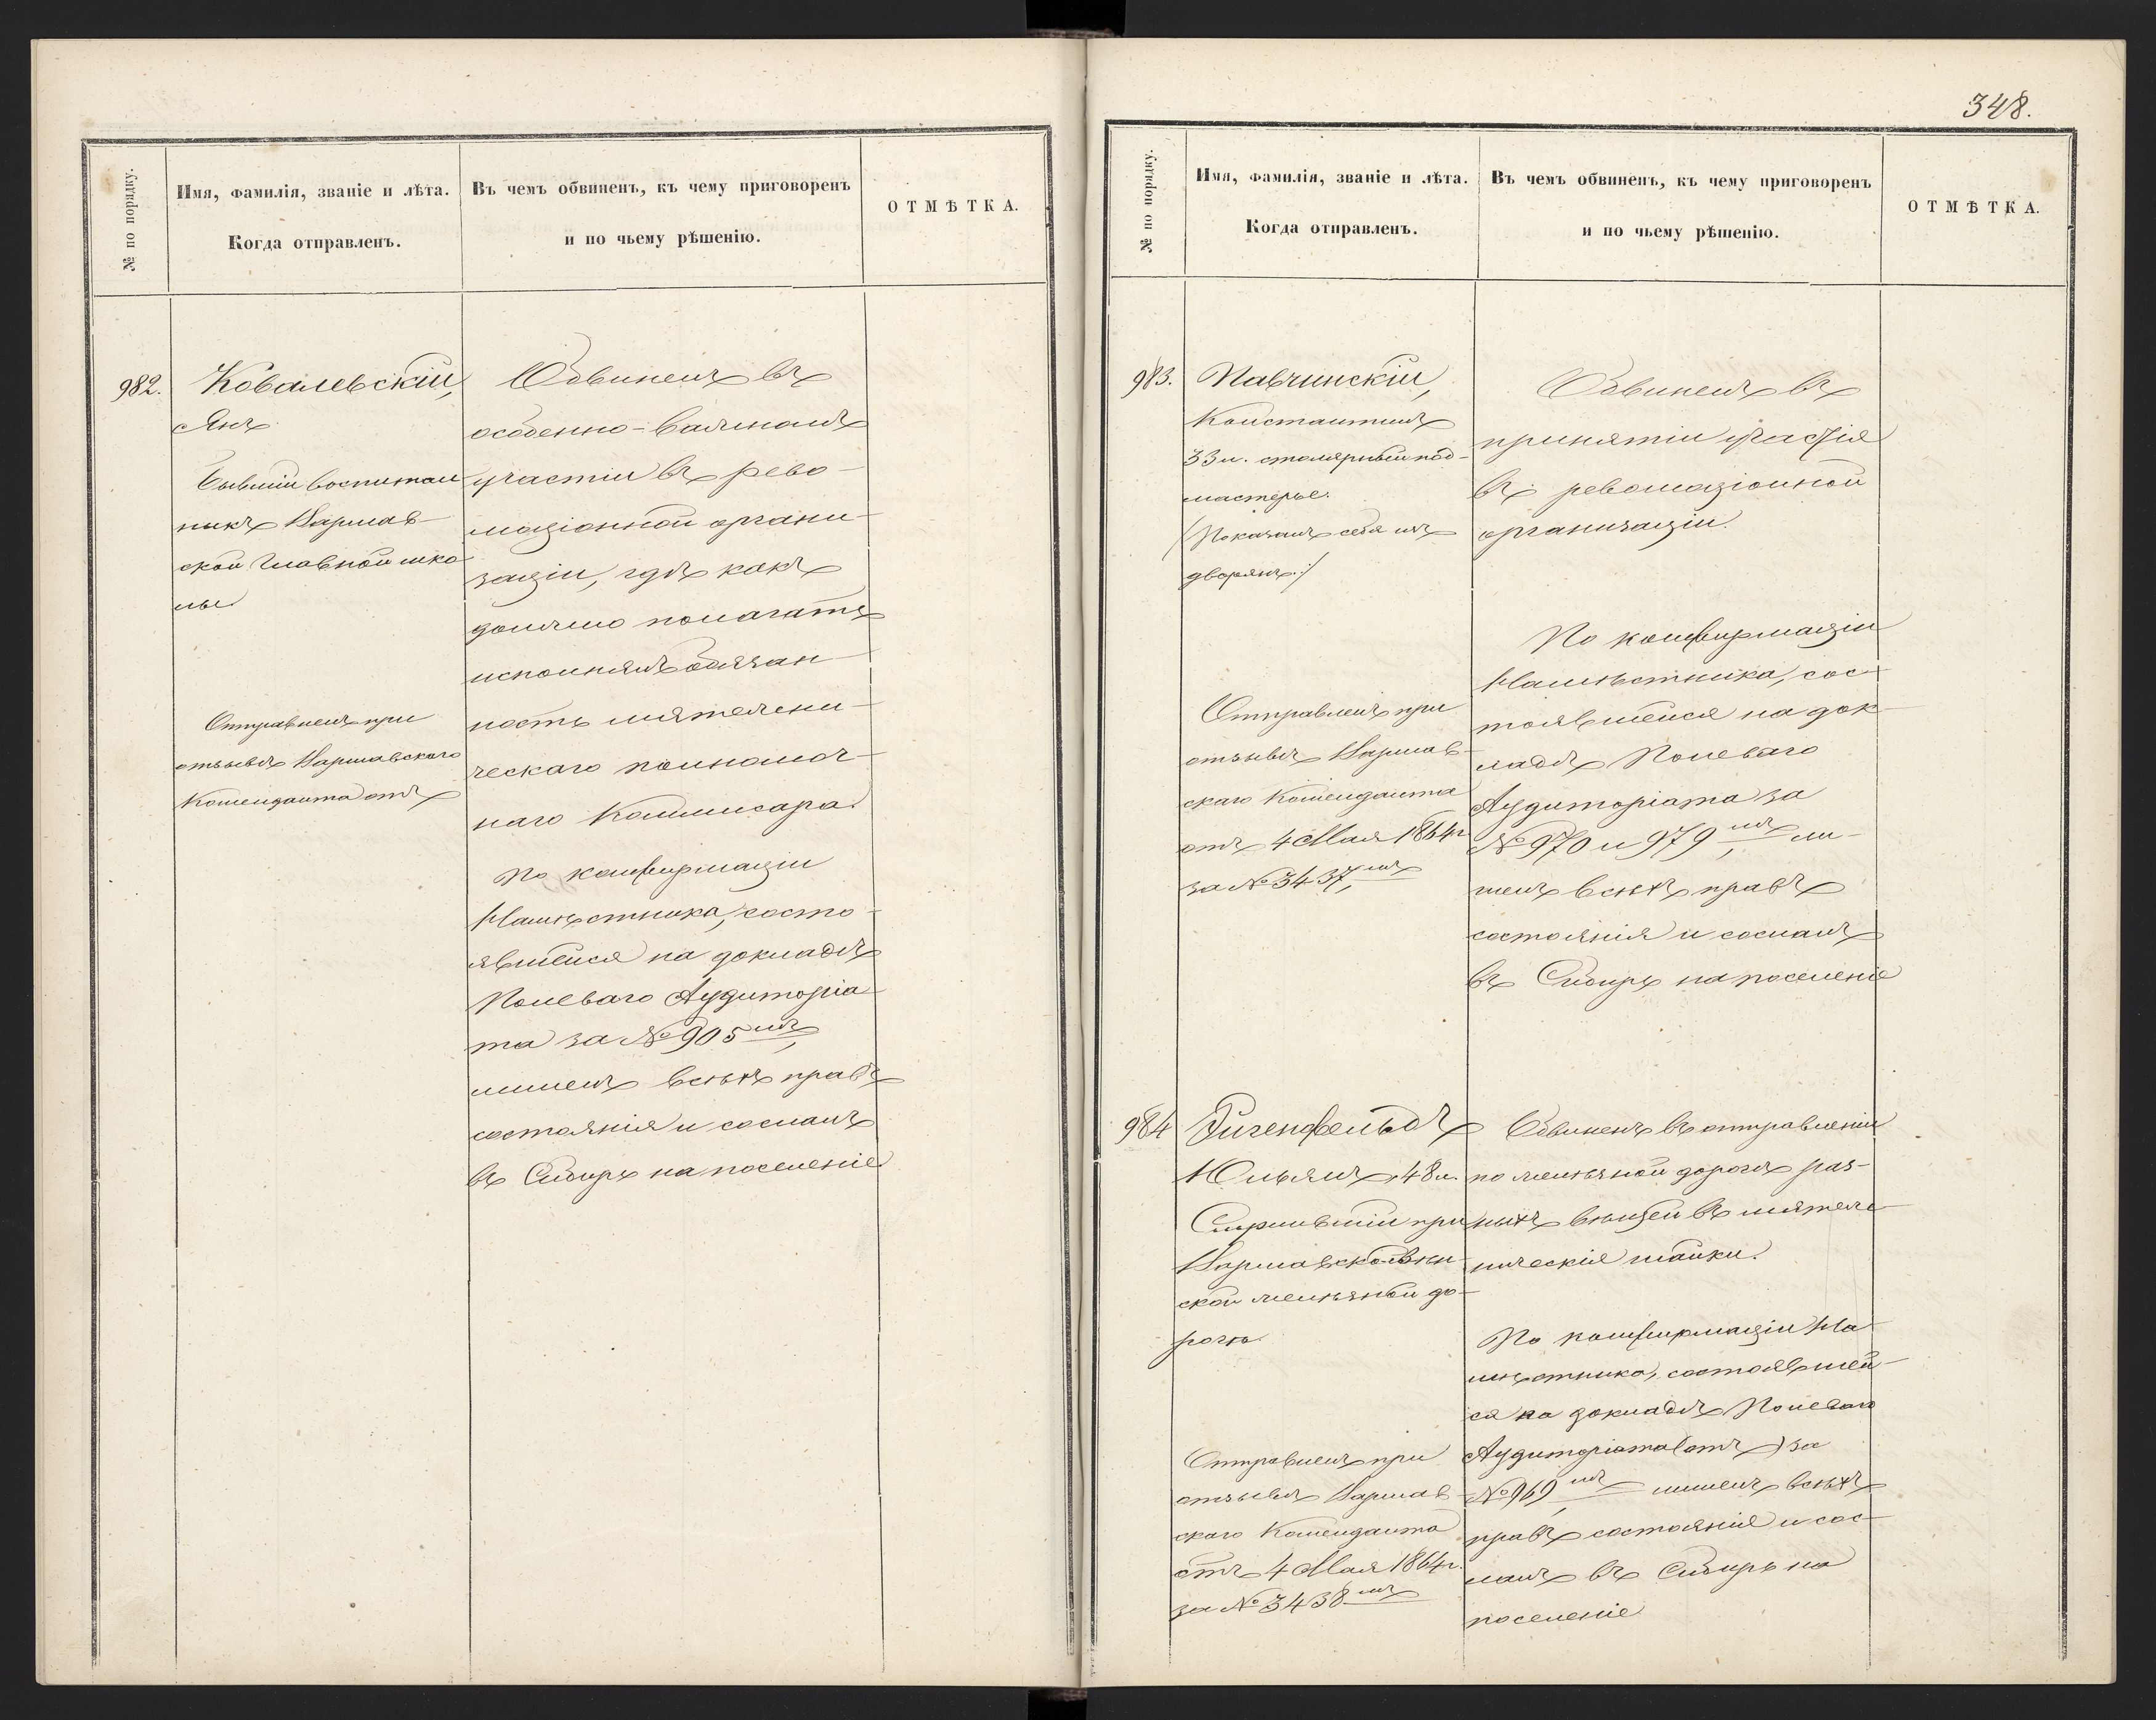 № по порядку.
Имя, фамилія, званіе и лѣта.
Когда отправленъ.
Въ чемъ обвиненъ, къ чему приговоренъ
и по чьему рѣшенію.
ОТМѢТКА.
982.
Ковалевскій,
Янъ
Бывшій воспитан
никъ Варшав-
ской Главной шко
лы
Отправленъ при
отзывѣ Варшавскаго
Коменданта отъ
Обвиненъ въ
особенно-важномъ
участіи въ рево-
люціонной органи-
заціи, гдѣ какъ
должно полагать
исполнялъ обязан-
ность мятежни-
ческаго полномоч-
наго Коммисара.
По конфирмаціи
Намѣстника, состо-
явшейся на докладѣ
Полеваго Аудиторіа-
та за № 905мъ,
лишенъ всѣхъ правъ
состоянія и сосланъ
въ Сибирь на поселеніе
348.
№ по порядку.
Имя, фамилія, званіе и лѣта.
Когда отправленъ.
Въ чемъ обвиненъ, къ чему приговоренъ
и по чьему рѣшенію.
ОТМѢТКА.
983.
Павчинскій,
Константинъ
33 л. столярный под-
мастерье.
(Показалъ себя изъ
дворянъ.)
Отправленъ при
отзывѣ Варшав-
скаго Коменданта
отъ 4 Мая 1864 г.
за № 3437,мъ
Обвиненъ въ
принятіи участія
въ революціонной
организаціи.
По конфирмаціи
Намѣстника, сос-
тоявшейся на док-
ладѣ Полеваго
Аудиторіата за
№ 970 и 979мъ, ли-
шенъ всѣхъ правъ
состоянія и сосланъ
въ Сибирь на поселеніе
984
Юльянъ, 48 л.
Служившій при
Варшавско Вѣн-
ской желѣзной до-
рогѣ.
Отправленъ при
отзывѣ Варшав-
скаго Коменданта
отъ 4 Мая 1864 г.
за № 3438мъ
Обвиненъ въ отправленіи
по желѣзной дорогѣ раз-
ныхъ вѣщей въ мятеж-
ническія шайки.
По конфирмаціи На-
мѣстника, состоявшей-
ся на докладѣ Полеваго
Аудиторіата (отъ ) за
№ 969мъ, лишенъ всѣхъ
правъ состоянія и сос-
ланъ въ Сибирь на
поселеніе